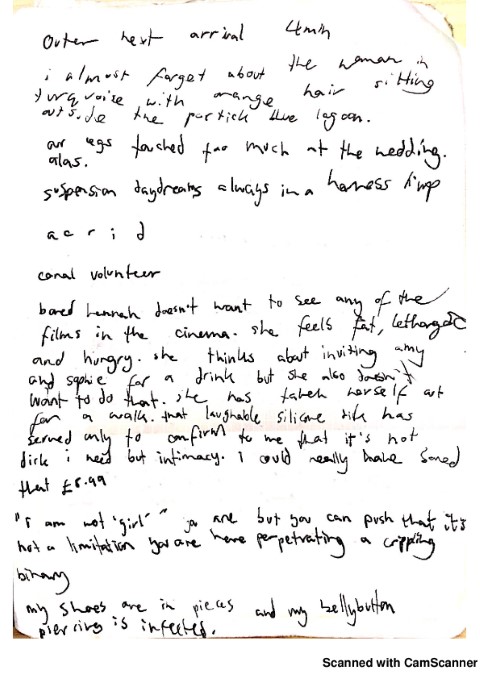 outer next arrival 4min
i almost forget about the woman in
turquoise with orange hair sitting
outside the partick blue lagoon.
our legs touched too much at the wedding.
alas.
suspension daydreams always in a harness limp
a c r i d
canal volunteer
bored hannah doesn't want to see any of the
films in the cinema. she feels fat, lethargic
and hungry. she thinks about inviting amy
and sophie for a drink but she also doesn't
want to do that. she has taken herself out
for a walk. that laughable silicone dik has
served only to confirm to me that it's not
dick i need but intimacy. i could really have saved
that £8.99
"i am not 'girl'" you are but you can push that it's
not a limitation you are here perpetrating a crippling
binary
my shoes are in pieces and my bellybutton
piercing is infected.
Scanned with CamScanner